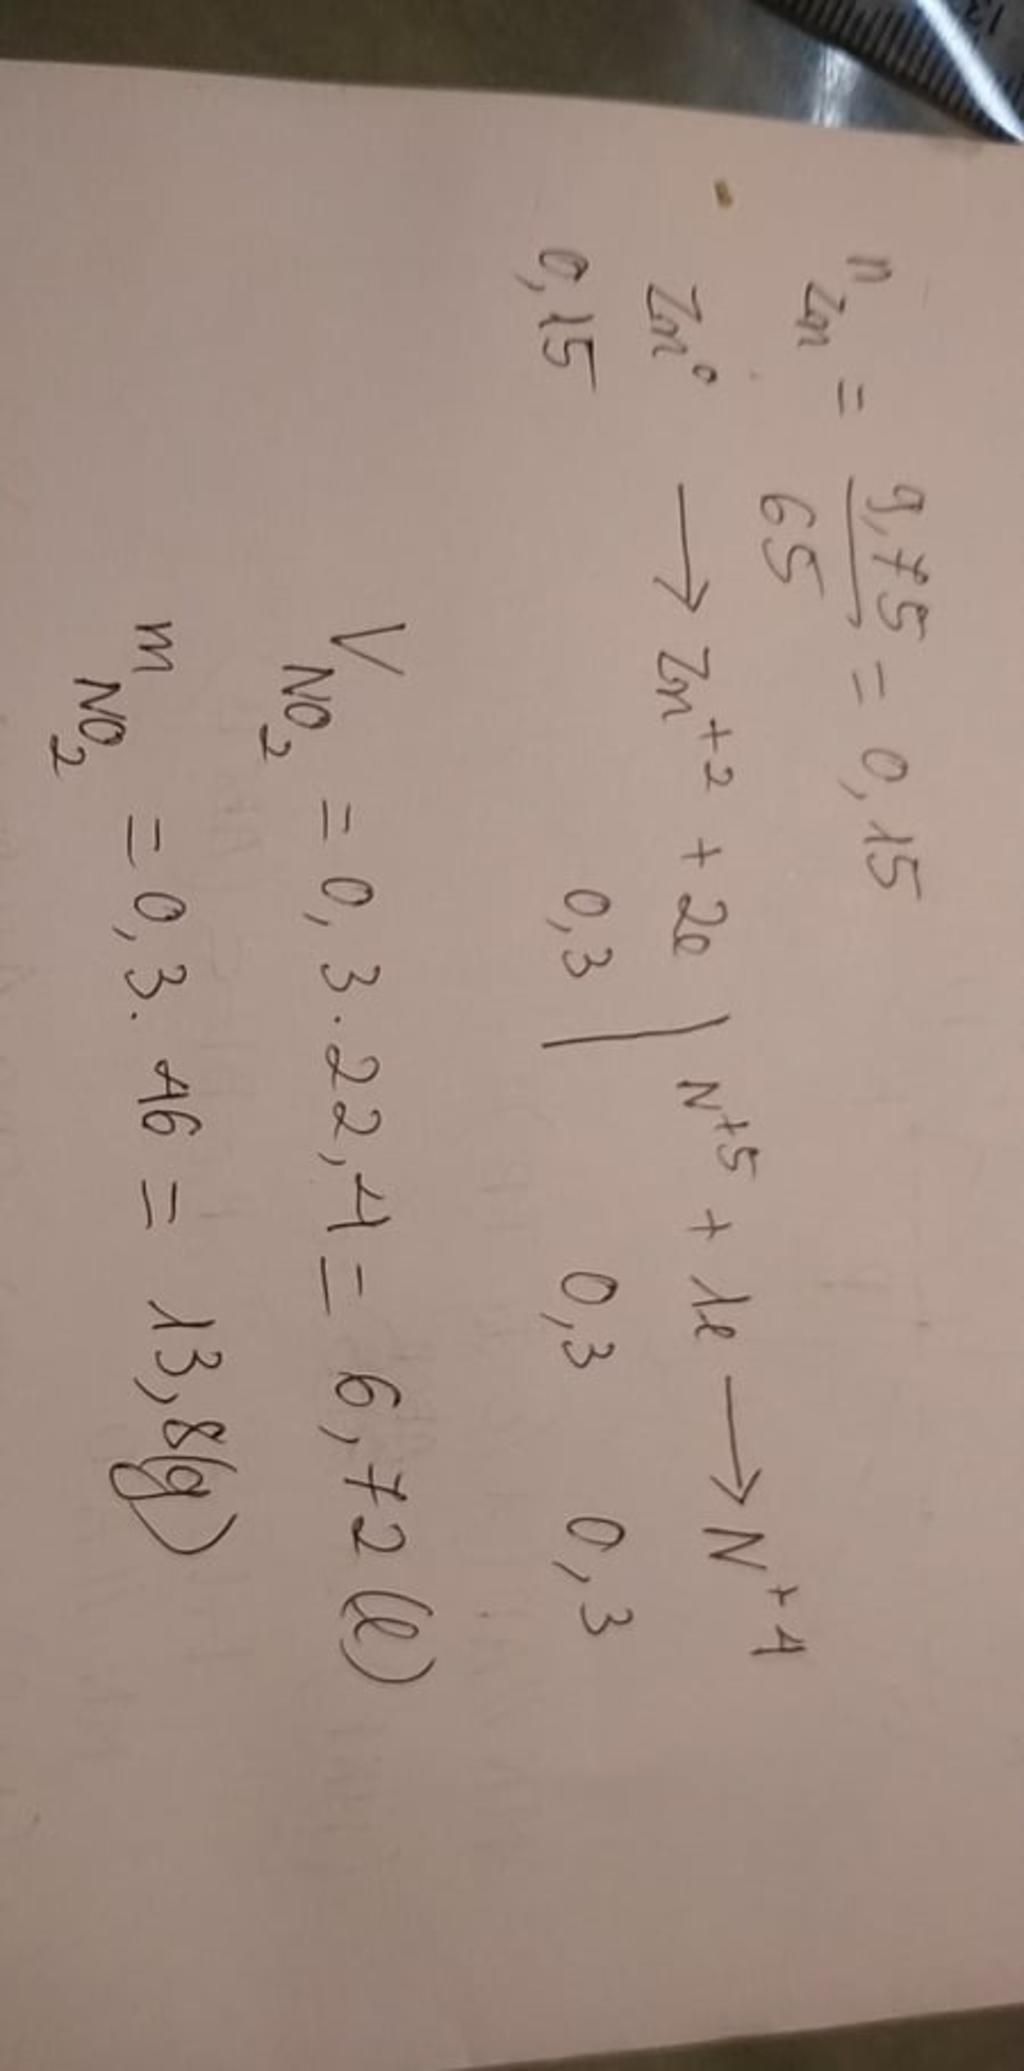 n Zn = 9,75 / 65 = 0,15
Zn⁰ → Zn⁺² + 2e | N⁺⁵ + 1e → N⁺⁴
0,15 0,3 | 0,3 0,3
V NO₂ = 0,3 . 22,4 = 6,72 (l)
m NO₂ = 0,3 . 46 = 13,8 (g)
13